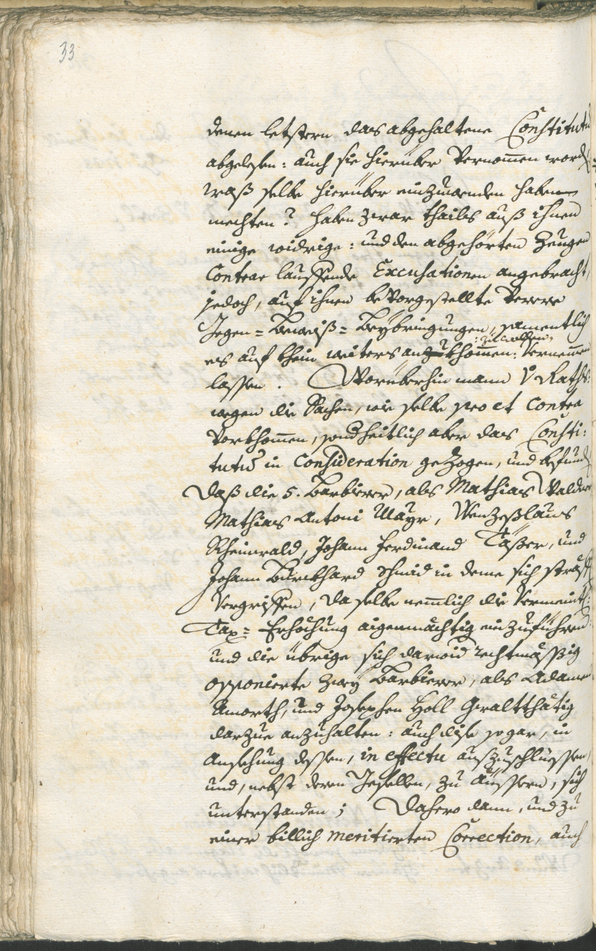 33
denen letstern das abgehaltene Constitutu
abgelesen: auch sie hierüber vernommen word
waß selbe hierüber einzuwenden haben
mechten? haben zwar theils auß ihnen
einige widrige: und den abgehörten Zeugen
contrar lauffende Excusationen angebracht,
jedoch, auf ihnen bevorgestellte
Gegen= Beweiß= Beybringungen, samentlich
es auf khein weiters ankhommen: vernemmen
zu wollen
lassen. Worüberhin mann V Raths=
wegen die Sachen, wie selbe pro et contra
vorkhommen, sonderheitlich aber das Consti=
tutu in consideration gezogen, und befund
Daß die 5. Barbierer, als Mathias Walder
Mathias Antoni Mayr, Wenzeßlaus
Rheinwald, Johann Ferdinand Täßer, und
Johann Burckhard Schmid in deme sich sträff
vergriffen, da selbe nemmlich die vermeint
Tax= Erhöchung aigenmächtig einzuführen
und die übrige sich darwid rechtmässig
opponierte zwey Barbierer, als Adam
Amorth, und Josephen Holl gwaltthätig
darzue anzuhalten: auch dise sogar, in
Ansehung dessen, in effectu außzuschlüssen,
und, nebst deren Gesellen, zu , sich
unterstanden; Dahero dann, und zu
einer billich meritierten Correction, auch